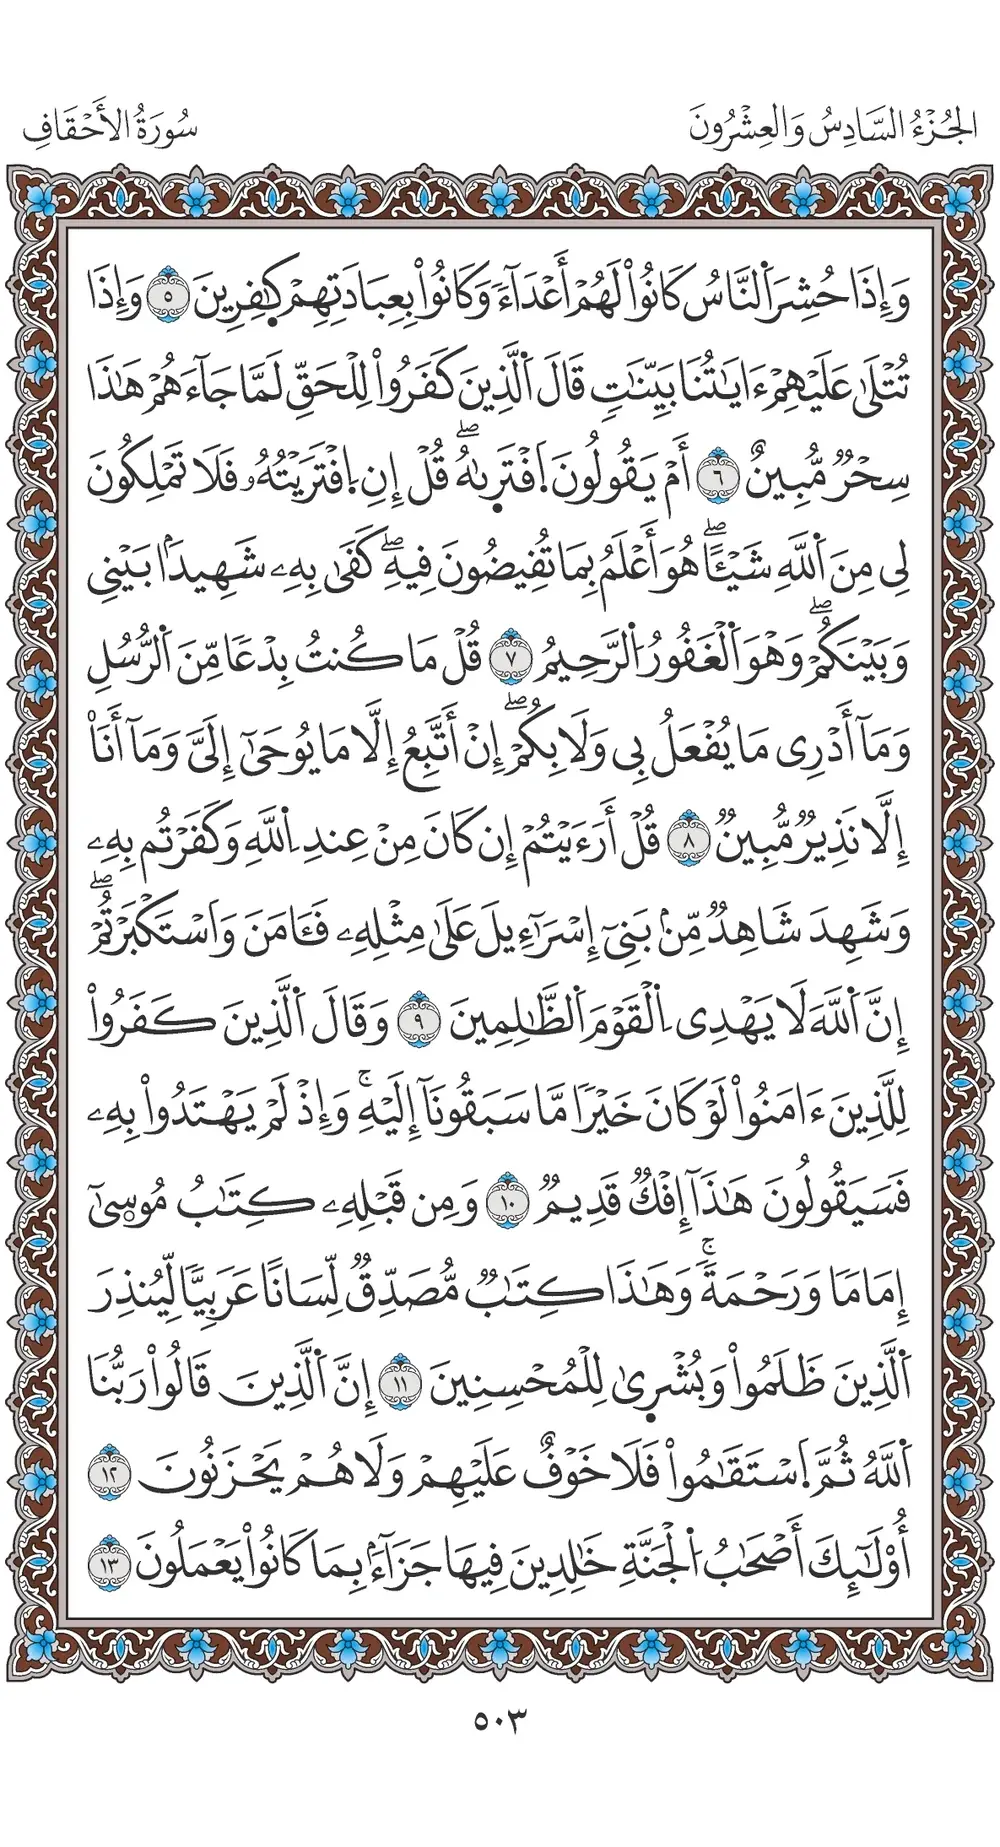 الجُزْءُ السَّادِسُ وَالعِشْرُونَ
سُورَةُ الأَحْقَافِ
وَإِذَا حُشِرَ اَ۬لنَّاسُ كَانُواْ لَهُمْ أَعْدَآءٗ وَكَانُواْ بِعِبَادَتِهِمْ كٜفِرِينَ ٥ وَإِذَا
تُتْلَىٰ عَلَيْهِمْ ءَايَٰتُنَا بَيِّنَٰتٖ قَالَ اَ۬لَّذِينَ كَفَرُواْ لِلْحَقِّ لَمَّا جَآءَهُمْ هَٰذَا
سِحْرٞ مُّبِينٌ ٦ أَمْ يَقُولُونَ اَ۪فْتَرٜىٰهُۖ قُلْ إِنِ اِ۪فْتَرَيْتُهُۥ فَلَا تَمْلِكُونَ
لِى مِنَ اَ۬للَّهِ شَيْـًٔاۖ هُوَ أَعْلَمُ بِمَا تُفِيضُونَ فِيهِۖ كَفَىٰ بِهِۦ شَهِيدَۢا بَيْنِى
وَبَيْنَكُمْۖ وَهْوَ اَ۬لْغَفُورُ اُ۬لرَّحِيمُ ٧ قُلْ مَا كُنتُ بِدْعٗا مِّنَ اَ۬لرُّسُلِ
وَمَآ أَدْرِى مَا يُفْعَلُ بِى وَلَا بِكُمْۖ إِنْ أَتَّبِعُ إِلَّا مَا يُوحَىٰٓ إِلَىَّ وَمَآ أَنَا۠
إِلَّا نَذِيرٞ مُّبِينٞ ٨ قُلْ أَرَءَيْتُمْ إِن كَانَ مِنْ عِندِ اِ۬للَّهِ وَكَفَرْتُم بِهِۦ
وَشَهِدَ شَاهِدٞ مِّنۢ بَنِىٓ إِسْرَٰٓءِيلَ عَلَىٰ مِثْلِهِۦ فَـَٔامَنَ وَاسْتَكْبَرْتُمْۖ
إِنَّ اَ۬للَّهَ لَا يَهْدِى اِ۬لْقَوْمَ اَ۬لظَّٰلِمِينَ ٩ وَقَالَ اَ۬لَّذِينَ كَفَرُواْ
لِلَّذِينَ ءَامَنُواْ لَوْ كَانَ خَيْرٗا مَّا سَبَقُونَآ إِلَيْهِۚ وَإِذْ لَمْ يَهْتَدُواْ بِهِۦ
فَسَيَقُولُونَ هَٰذَآ إِفْكٞ قَدِيمٞ ١٠ وَمِن قَبْلِهِۦ كِتَٰبُ مُوسٜىٰٓ
إِمَامٗا وَرَحْمَةٗۚ وَهَٰذَا كِتَٰبٞ مُّصَدِّقٞ لِّسَانًا عَرَبِيّٗا لِّيُنذِرَ
اَ۬لَّذِينَ ظَلَمُواْ وَبُشْرٜىٰ لِلْمُحْسِنِينَ ١١ إِنَّ اَ۬لَّذِينَ قَالُواْ رَبُّنَا
اَ۬للَّهُ ثُمَّ اَ۪سْتَقَٰمُواْ فَلَا خَوْفٌ عَلَيْهِمْ وَلَا هُمْ يَحْزَنُونَ ١٢
أُوْلَٰٓئِكَ أَصْحَٰبُ اُ۬لْجَنَّةِ خَٰلِدِينَ فِيهَا جَزَآءَۢ بِمَا كَانُواْ يَعْمَلُونَ ١٣
٥٠٣